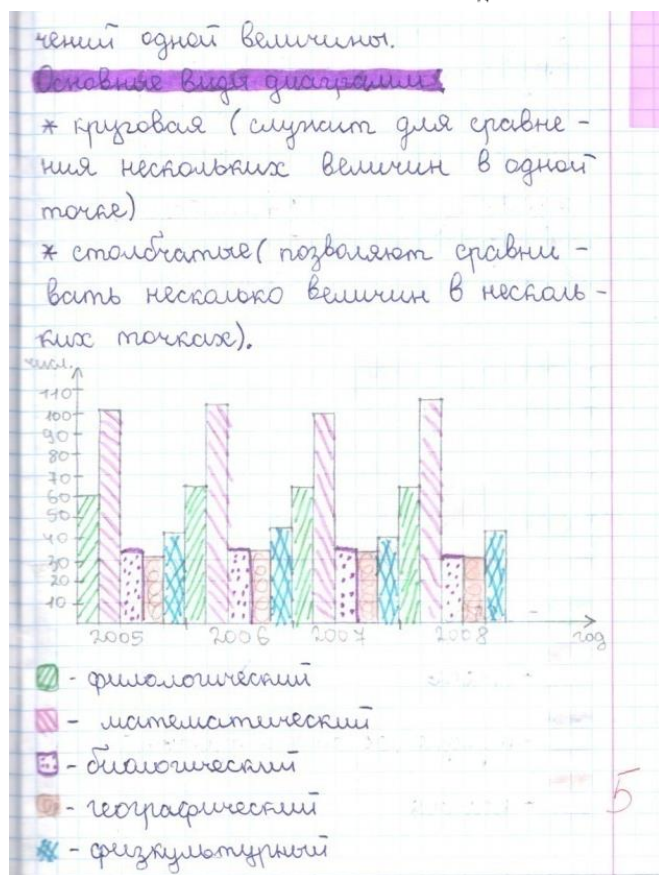 чений одной величины.
Основные виды диаграмм
* круговая (служит для сравне-
ния нескольких величин в одной
точке)
* столбчатые (позволяют сравни-
вать несколько величин в несколь-
ких точках).
числ.
110
100
90
80
70
60
50
40
30
20
10
2005 2006 2007 2008 год
- филологический
- математический
- биологический
- географический
- физкультурный
5